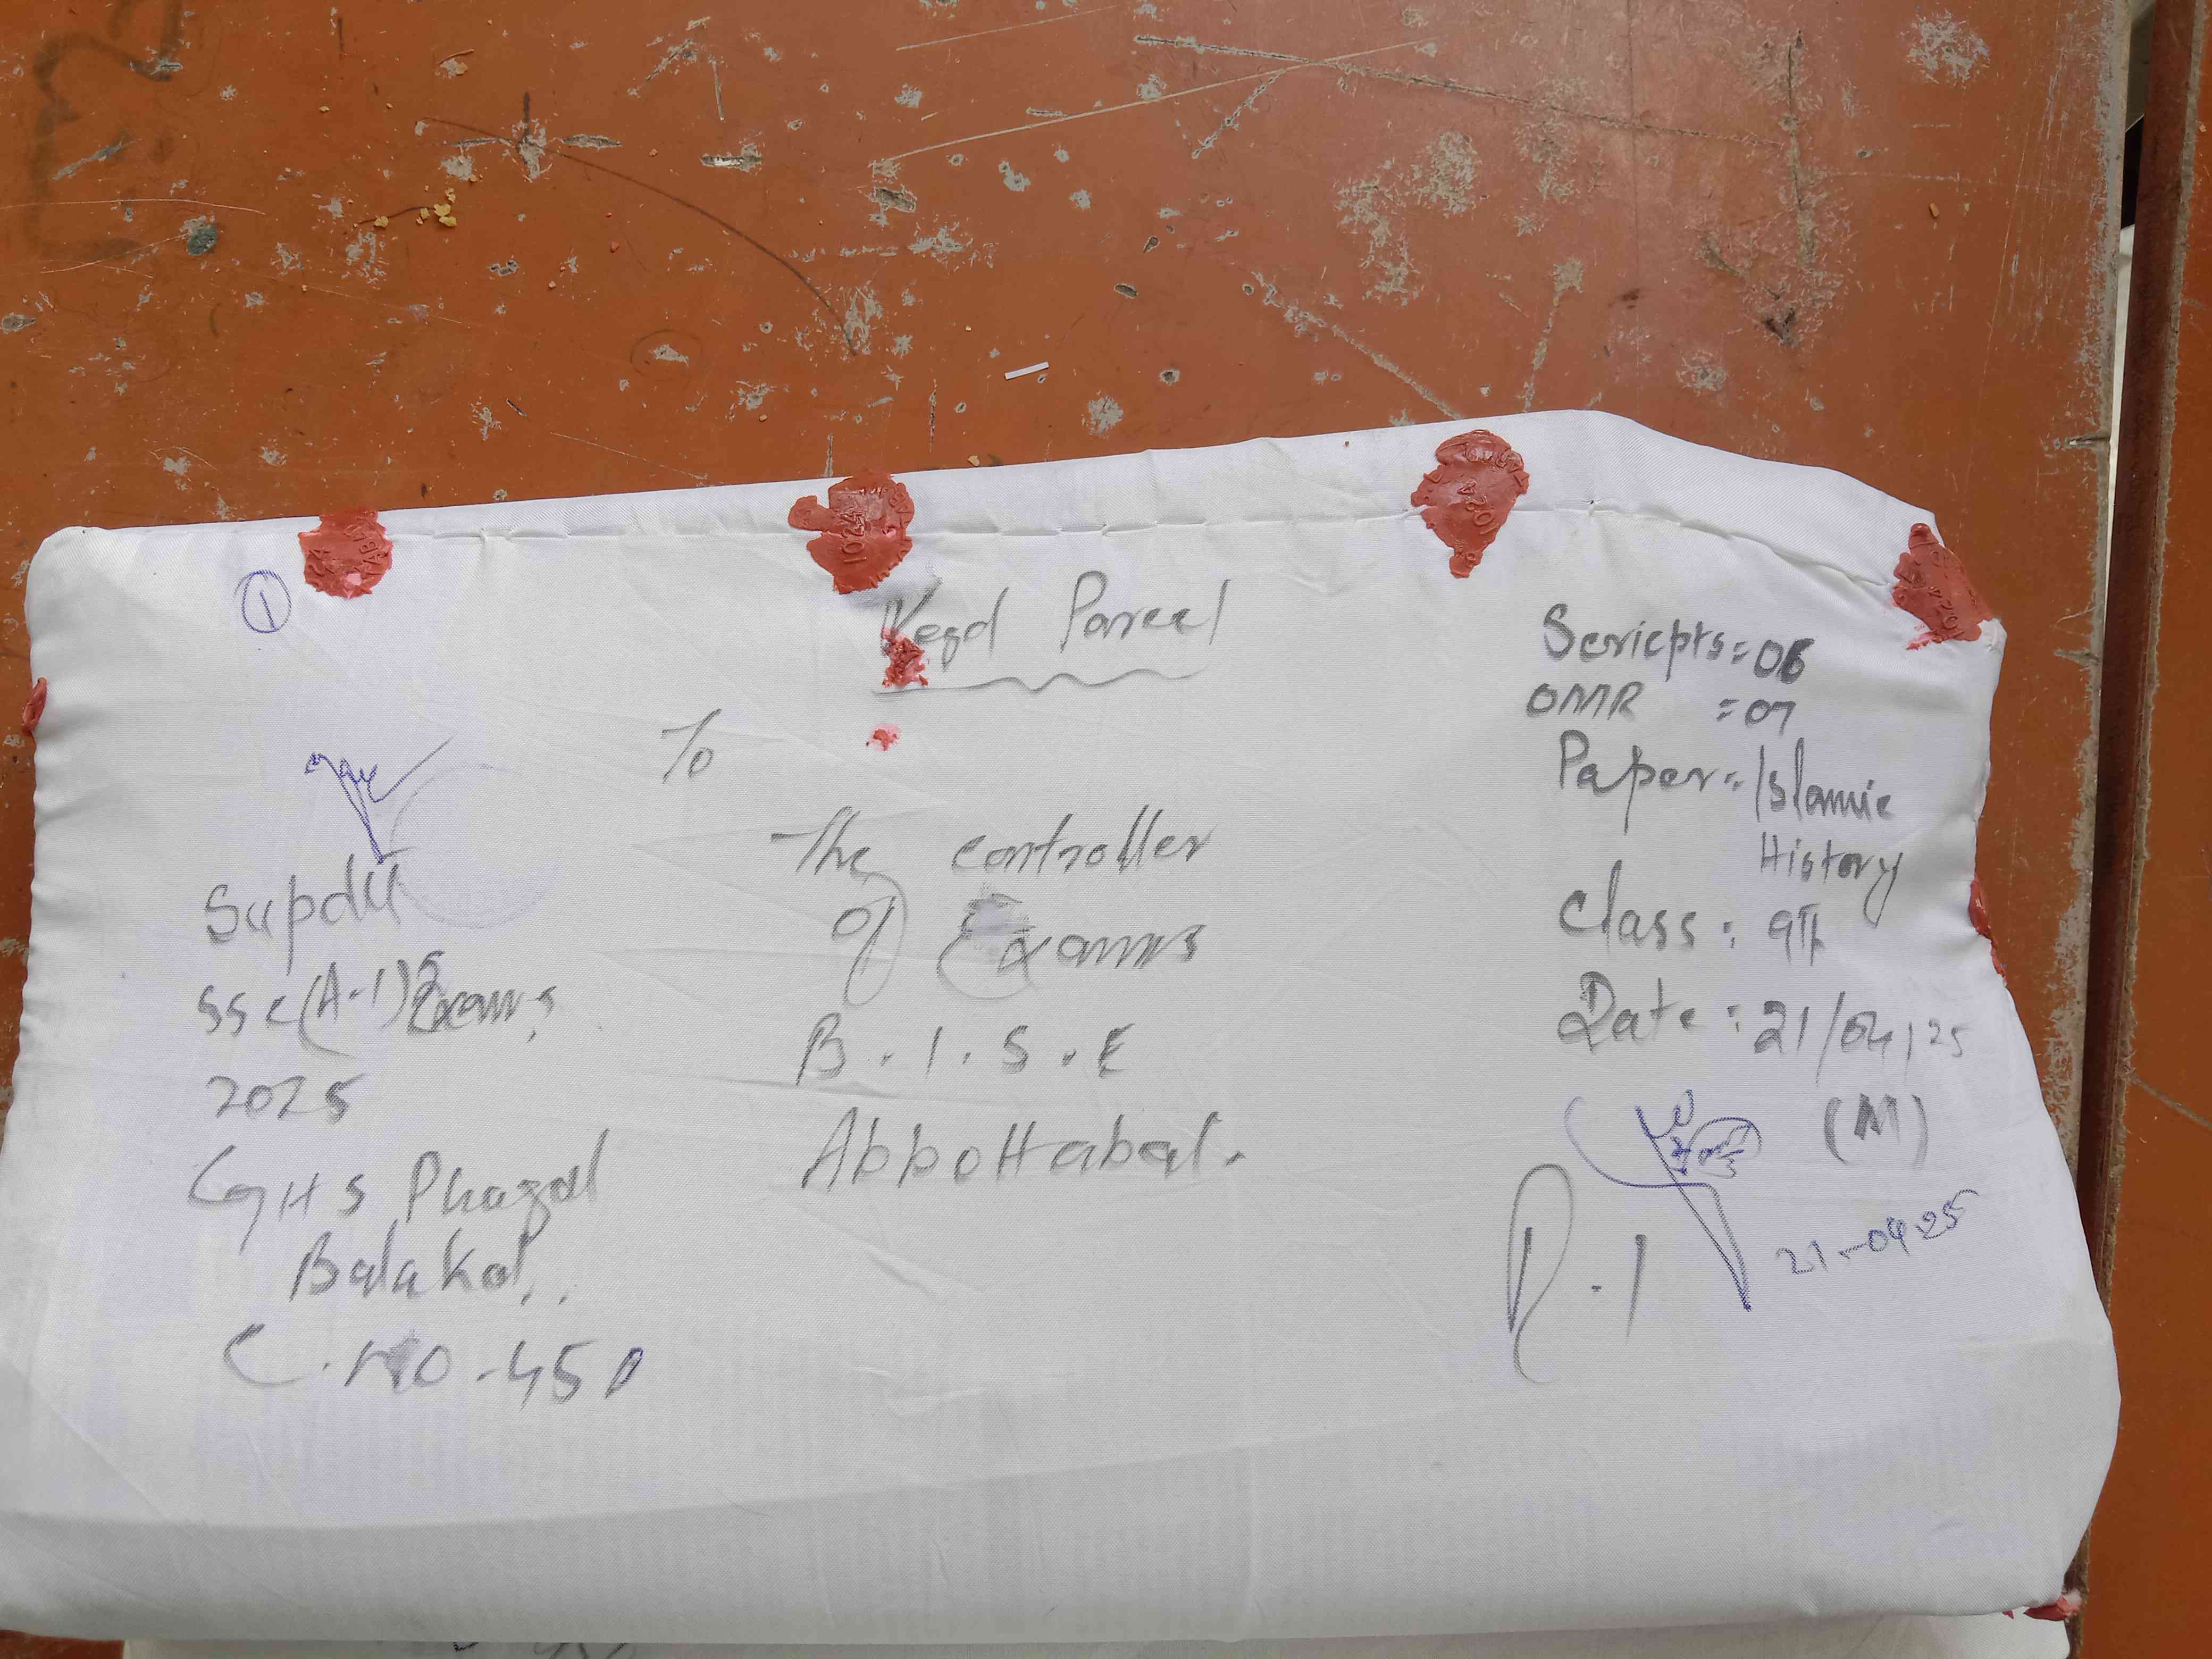 1
Regd Parcel
To
The controller
of Exams
B.I.S.E
Abbottabad.
Supdtt
SSC(A-1) Exams
2025
GHS Phagal
Balakot..
C.NO-450
Scricpts=06
OMR =07
Paper=Islamic
History
Class: 9th
Date: 21/04/25
(M)
R.1
21-04-25
1024
1024